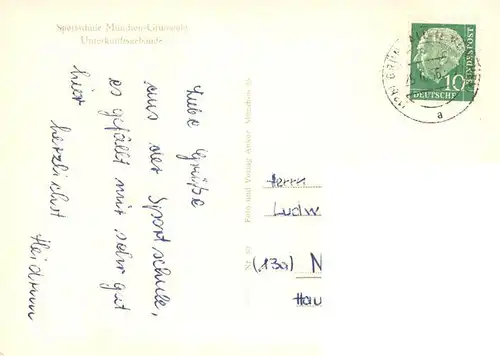 Sportschule München-Grünwald
Unterkunftsgebäude
Liebe Grüße
aus der Sportschule,
es gefällt mir sehr gut
hier
herzlichst
Heidrun
Foto und Verlag Anton
München
Nr.
DEUTSCHE
BUNDESPOST
10
a
Herrn
Ludw
(13a) N
Hau